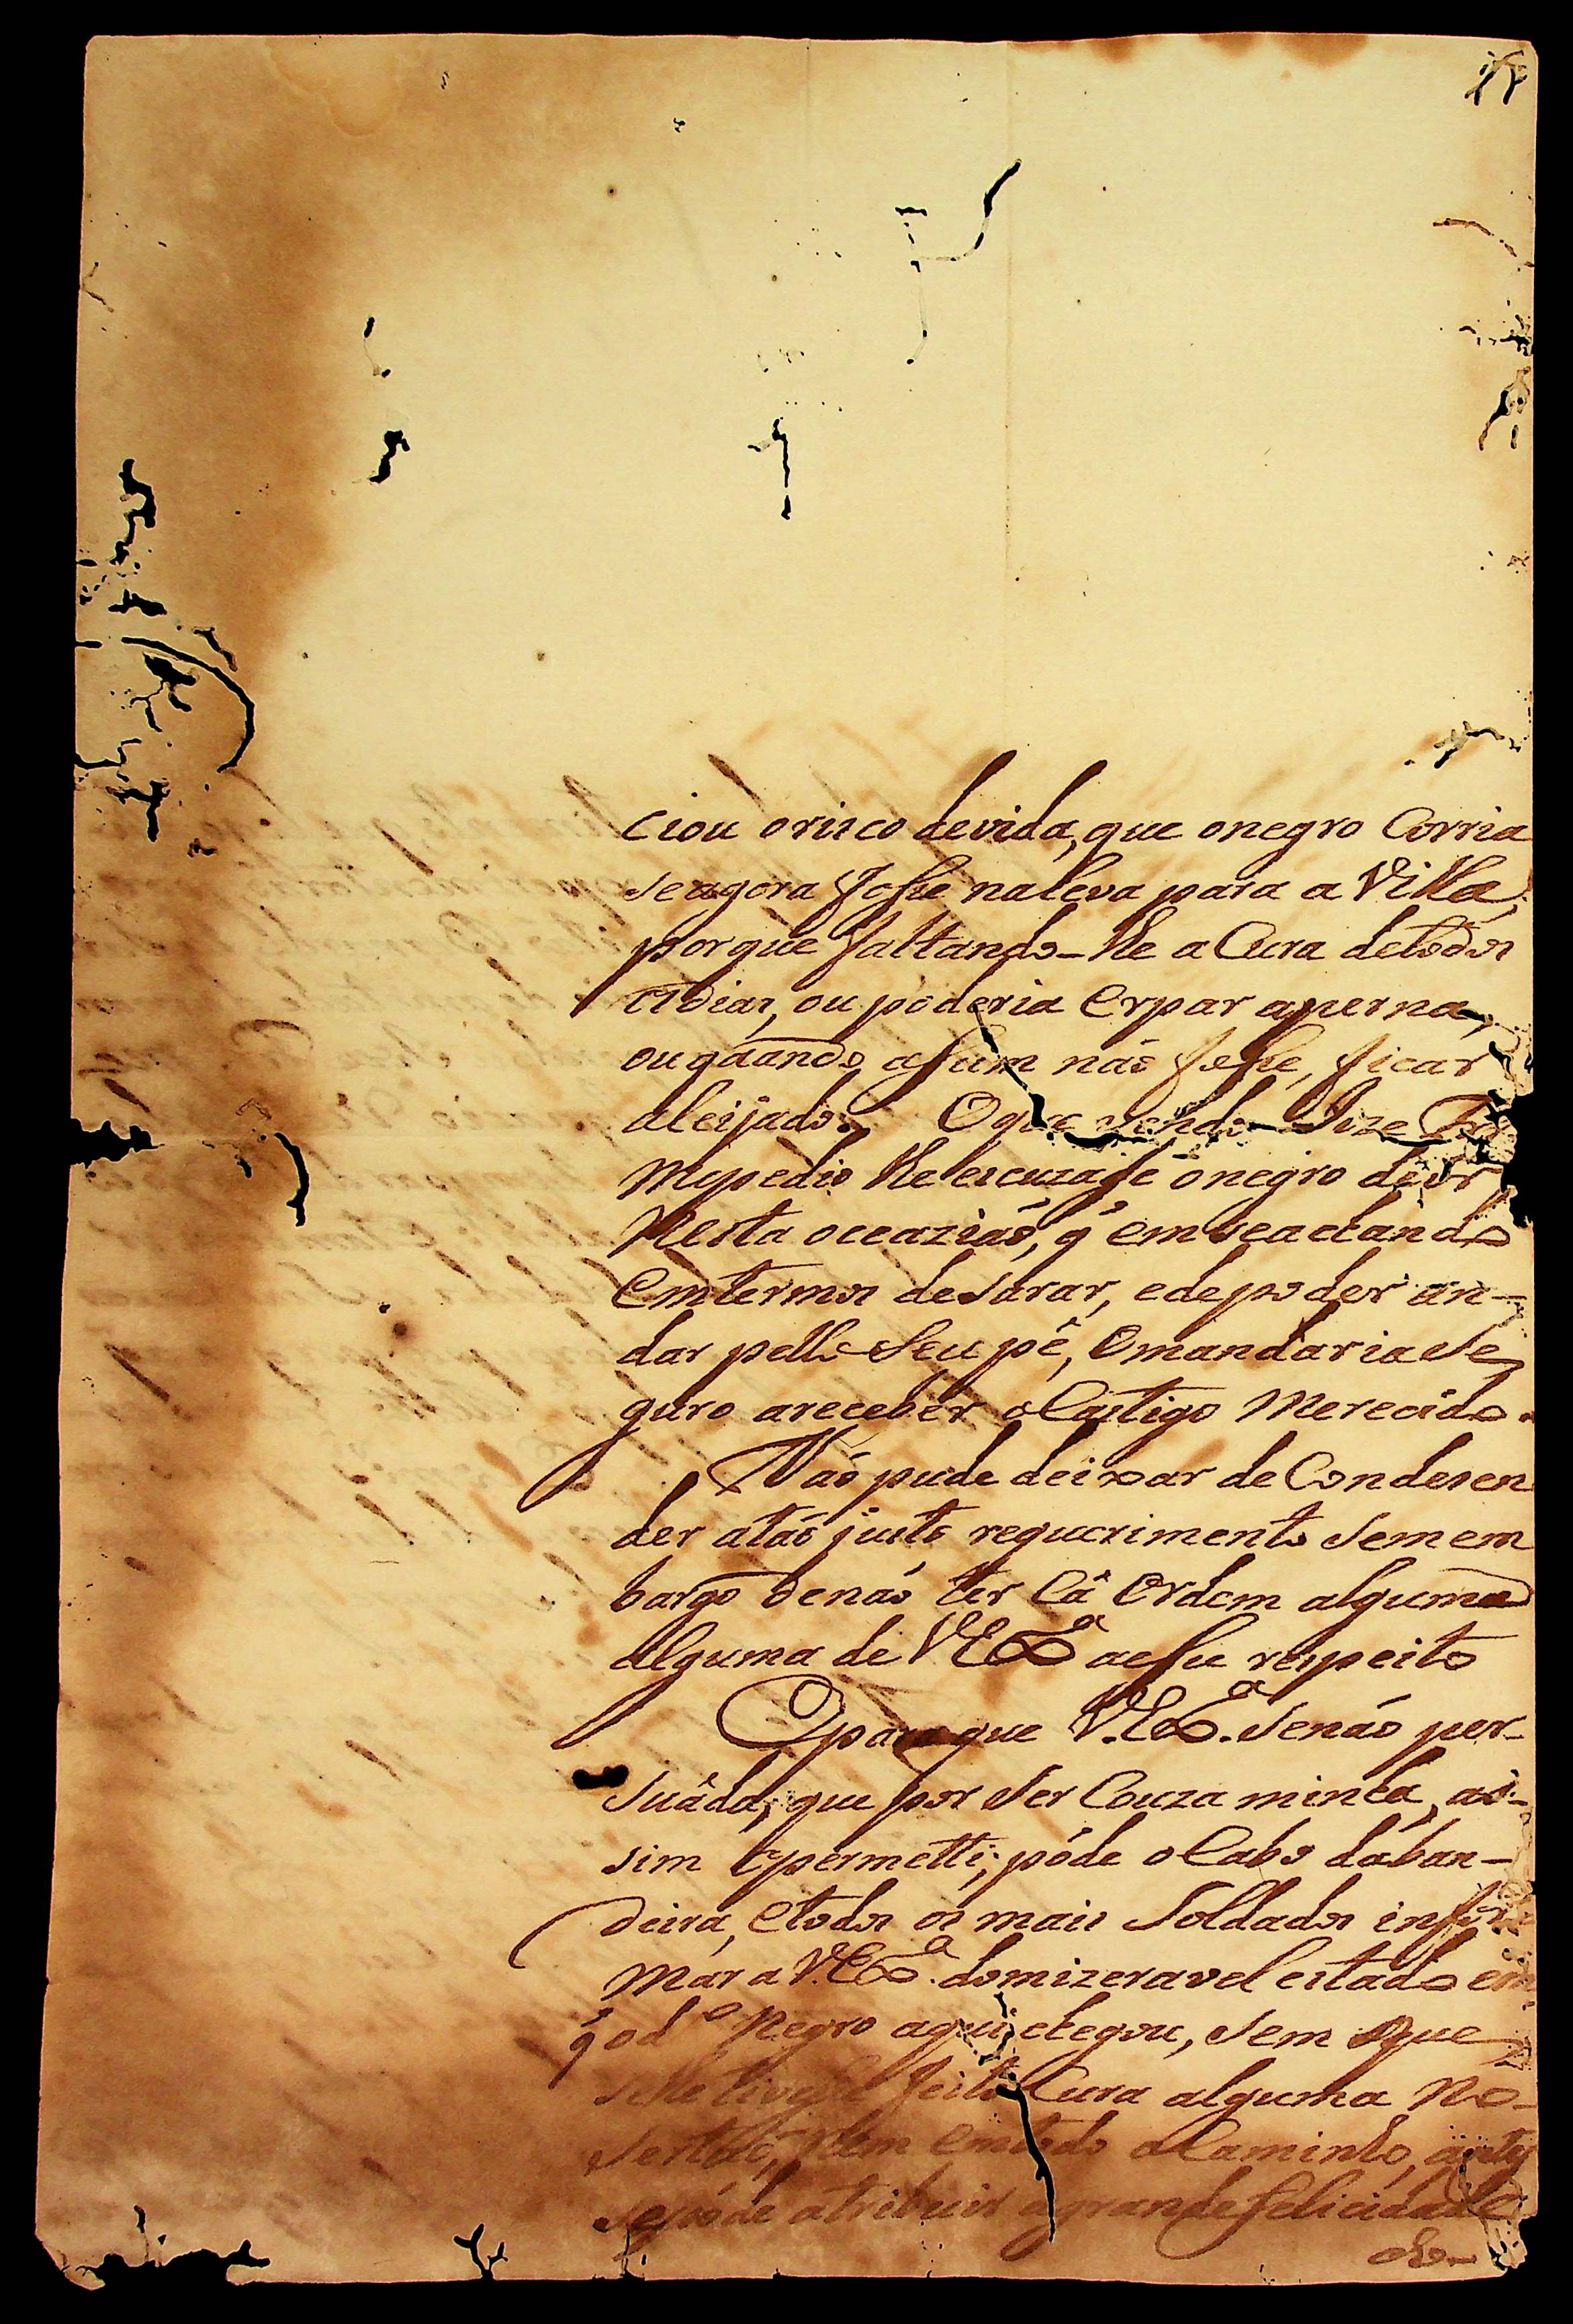 ciou orisco devida, que onegro Corria
seagora fosse naleva para a Villa,
porque faltando-lhe a Cura detodos
osdias, ou poderia Crpar aperna,
ouqdando assim não fosse, ficar
aleijado. Oque vendo Fize
Mepedio lheescuzasse onegro deir
Nesta occazião, q̃ em seachando
Emtermos deSarar, edepoder an-
dar pello Seu pê, Omandaria Se
guro areceber oCastigo Merecido.
Não pude deixar de Condesen
der atão justo requerimento Semem
bargo denão ter Câ Ordem alguma
alguma de VEx.ª aesse respeito
Epara que V.Ex.ª Senão per-
Suâda, que por Ser Couza minha, as-
sim Opermetti; póde oCabo dában-
deira, Etodos os mais Soldados infor
mar a V.Ex.ª domizeravel estado em
q̃ od.º Negro aqui chegou, Sem que
selhe tivesse feito Cura alguma No
Sertão, Nem Emtodo oCaminho, antes
sepóde atribuir agrande felicidade